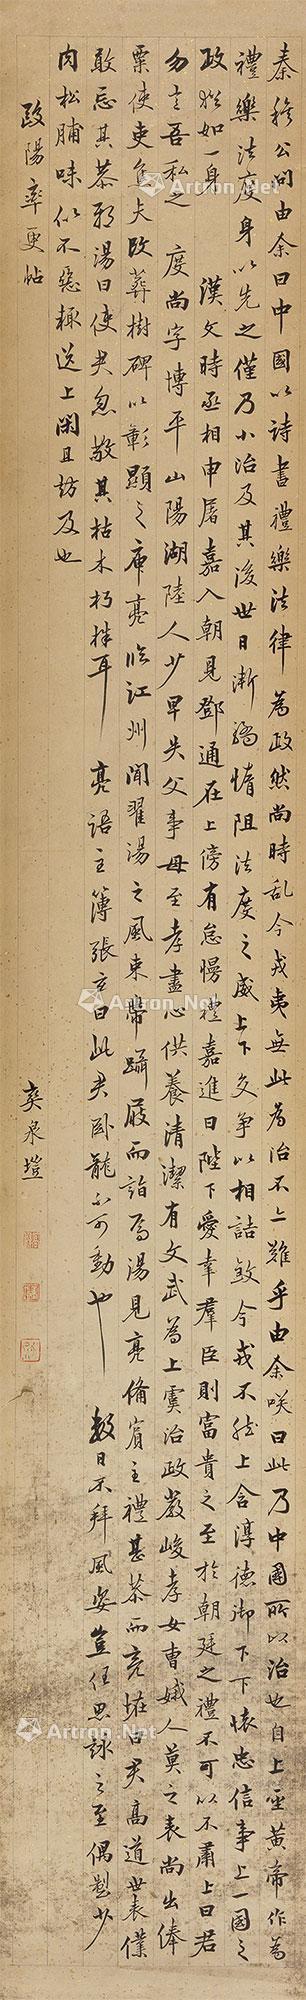 秦穆公問由余曰中國以詩書禮樂法律為政然尚時亂今戎夷無此為治不亦難乎由余咲曰此乃中國所以治也自上聖黃帝作為
禮樂法度身以先之僅乃小治及其後世日漸驕惰阻法度之威上下交爭以相詰
今戎不然上含淳德御下下懷忠信事上一國之
政猶如一身 漢文時丞相申屠嘉入朝見鄧通在上傍有怠慢禮嘉進曰陛下愛幸羣臣則富貴之至於朝廷之禮不可以不肅上曰君
勿言吾私之 度尚字博平山陽湖陸人少早失父事母至孝盡心供養清潔有文武為上虞治政嚴峻孝女曹娥人莫之表尚出俸
粟使吏 改葬樹碑以彰顯之 庾亮臨江州聞翟湯之風束帶躡屐而詣焉湯見亮備賓主禮甚恭而亮 曰君高道世表僕
敢忘其恭邪湯曰使君忽敬其枯木朽株耳 亮語主簿張玄曰此君臥龍不可動也 數日不拜風姿豈任思詠之至偶製少
肉松脯味似不惡輒送上閑且訪及也
歐陽率更帖 奕泉塏
Artron.Net
Artron.Net
Artron.Net
Artron.Net
Artron.Net
Artron.Net